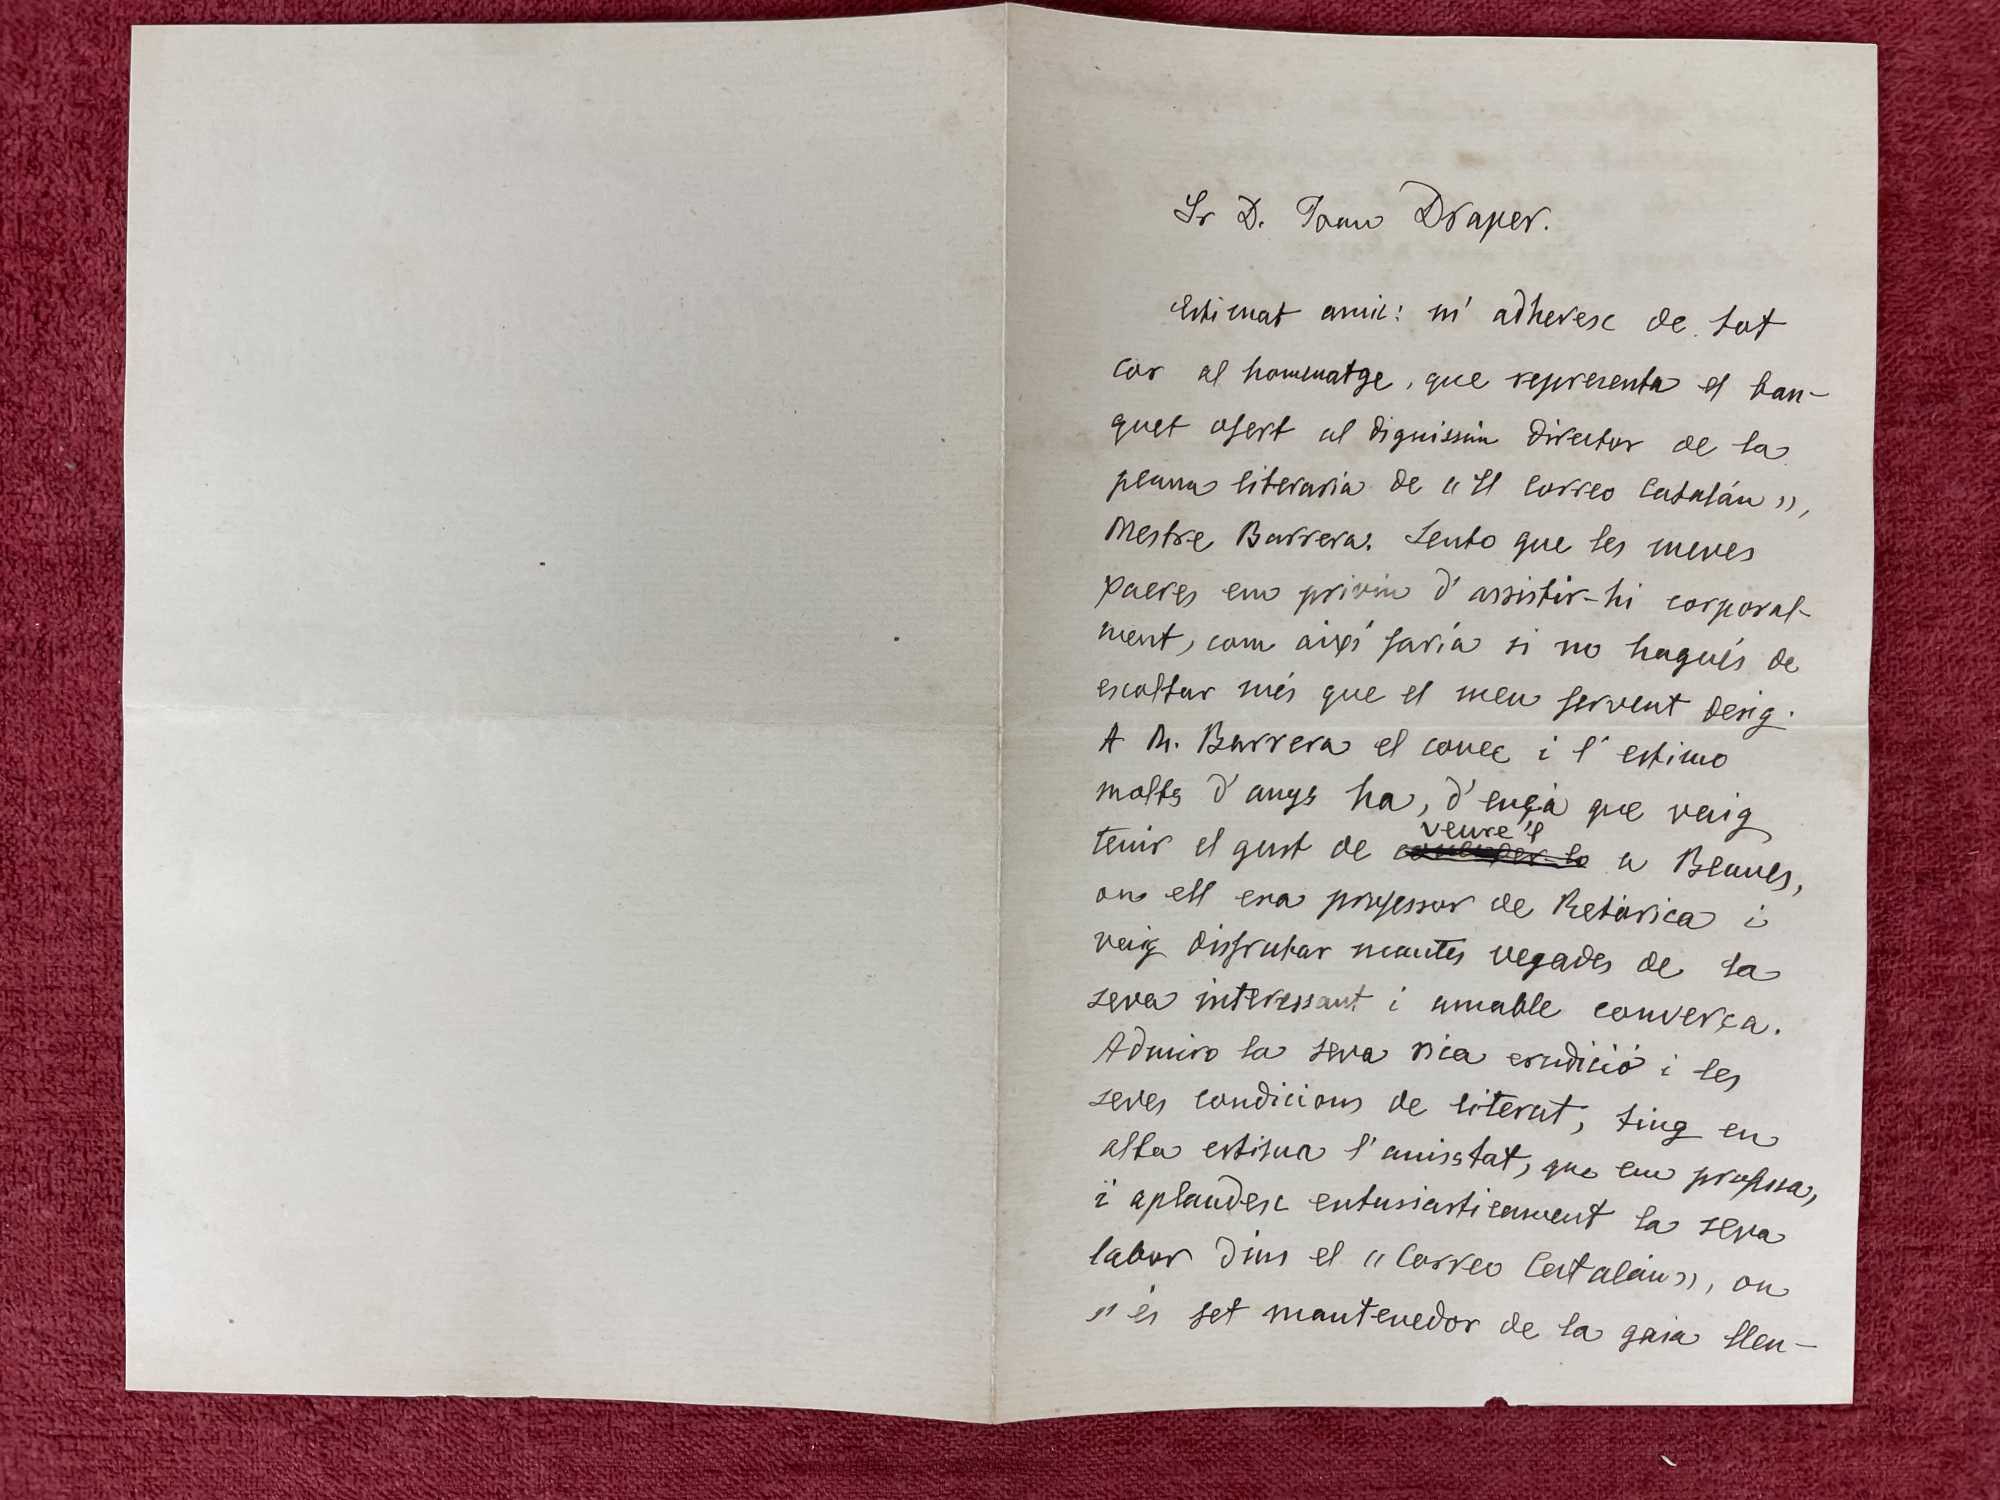 Sr D. Joan Draper.
Estimat amic: m'adheresc de tot
cor al homenatge, que representa el ban-
quet ofert al digníssim director de la
plana literaria de "El Correo Catalán",
Mestre Barrera. Sento que les meves
xacres em privin d'assistir-hi corporal-
ment, com aixi faria si no hagués de
escoltar més que el meu fervent desig.
A M. Barrera el conec i l'estimo
molts d'anys ha, d'ençà que vaig
tenir el gust de veure'l a Blanes,
on ell era professor de Retòrica i
vaig disfrutar mantes vegades de la
seva interessant i amable converça.
Admiro la seva rica erudició i les
seves condicions de literat, ting en
alta estima l'amisstat, que em professa,
i aplaudesc entusiasticament la seva
labor dins el "Correo Catalán", on
s'és fet mantenedor de la gaia llen-